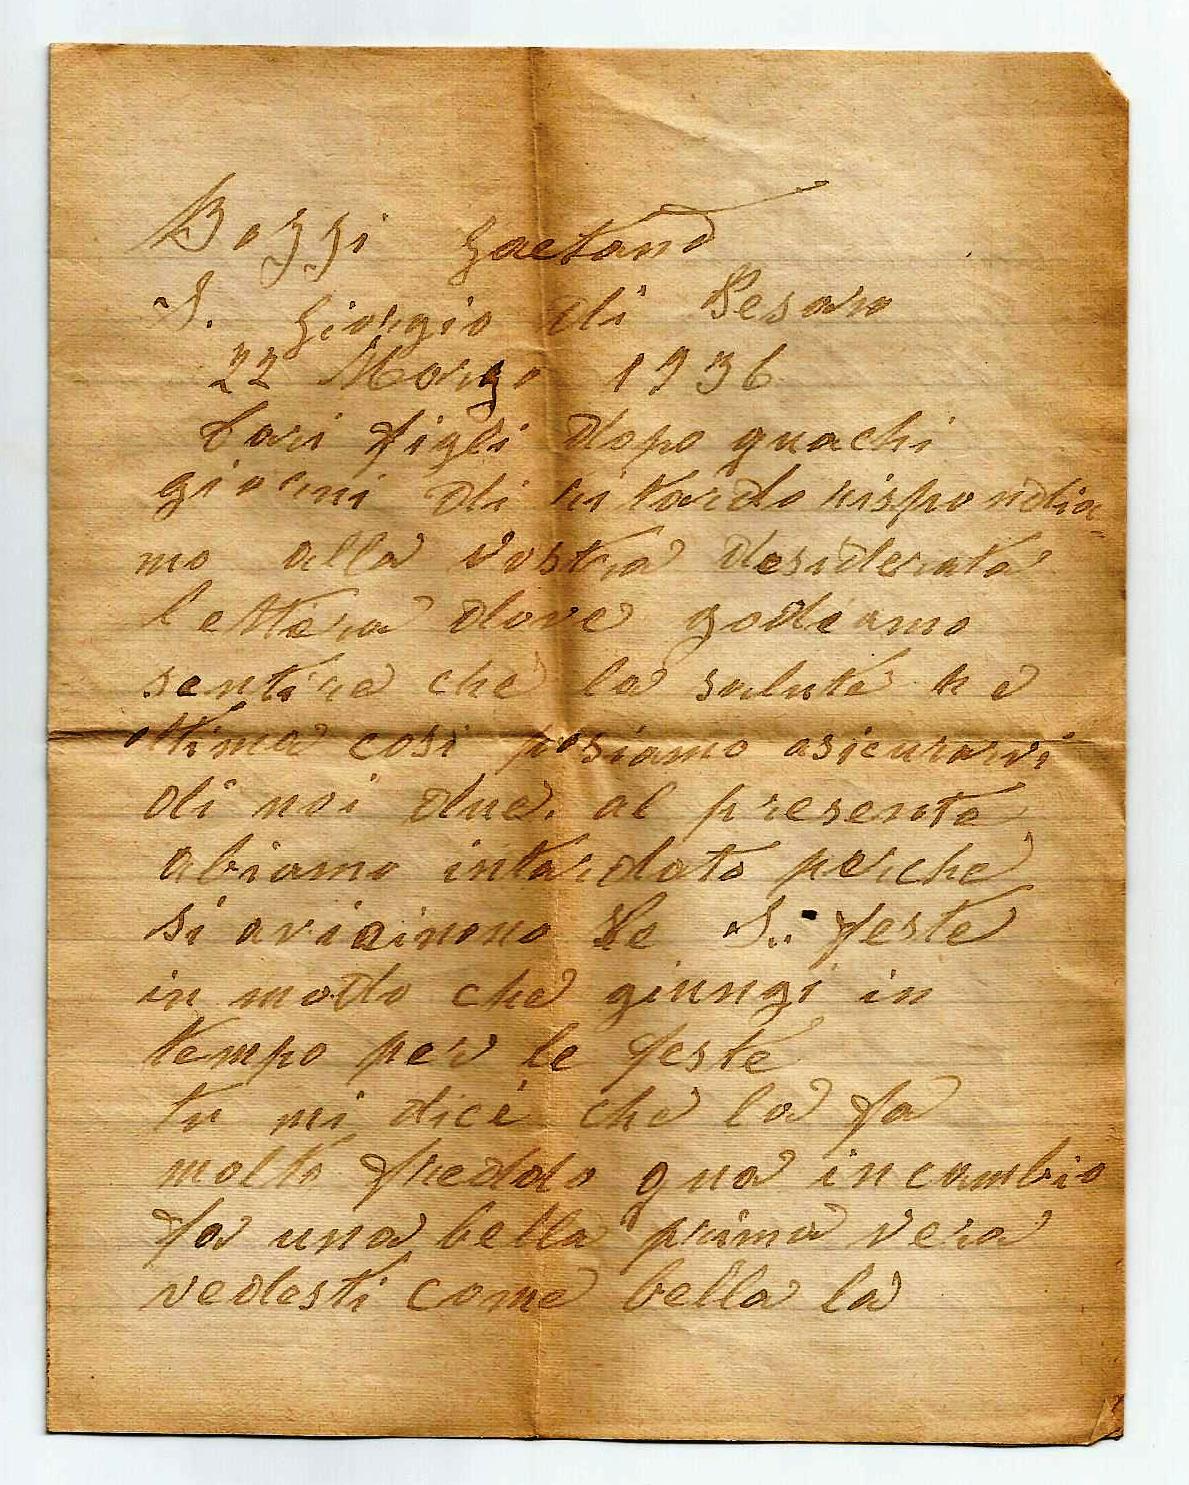 Bozzi Gaetano
S. Giorgio di Pesaro
22 Marzo 1936
Cari figli dopo quachi
giorni di ritardo rispondia-
mo alla vostra desiderata
lettera dove godiamo
sentire che la salute he
ottima così posiamo asicurarvi
di noi due. al presente
abiamo intardato perche
si avicinono le S.. feste
in modo che giungi in
tempo per le feste
tu mi dici che la fa
molto freddo qua incambio
fa una bella prima vera
vedesti come bella la